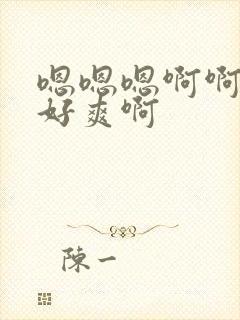 嗯嗯嗯啊啊
好爽啊
陳一